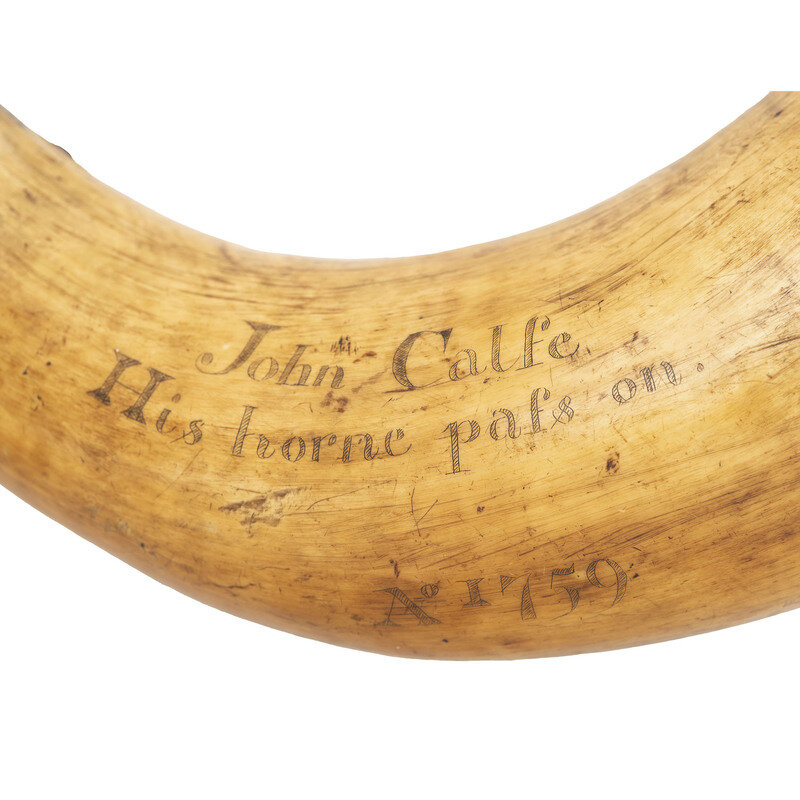 John Calfe
His horne paſs on.
Aº 1759